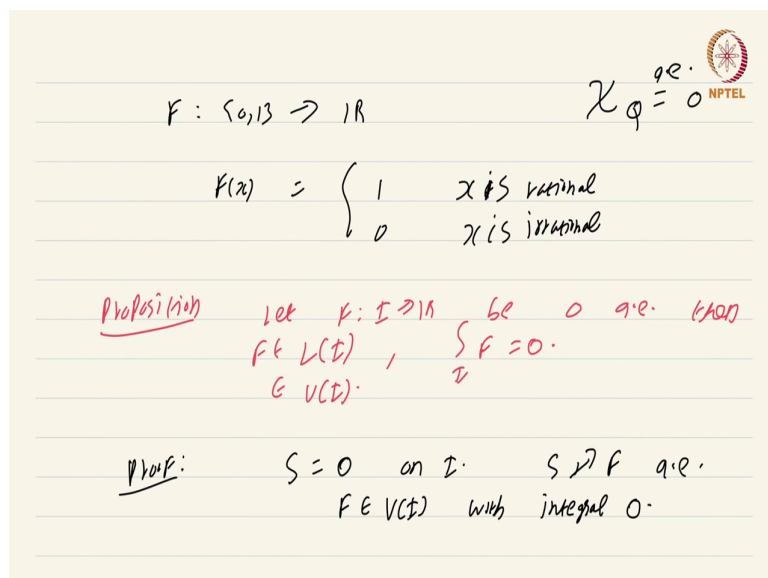 χ_Q = 0 a.e.
NPTEL
F : [0,1] → ℝ
F(x) = { 1 x is rational
0 x is irrational
Proposition Let F : I → ℝ be 0 a.e. then
F ∈ L(I) , ∫_I F = 0.
∈ U(I).
Proof: S = 0 on I. S ↗ F a.e.
F ∈ U(I) with integral 0.